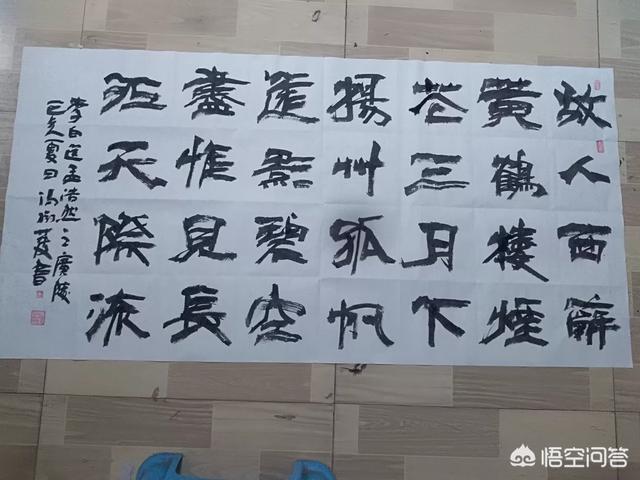 故人西辭
黃鶴樓煙
花三月下
揚州孤帆
遠影碧空
盡惟見長
江天際流
李白送孟浩然之廣陵
己亥夏日冯
悟空问答